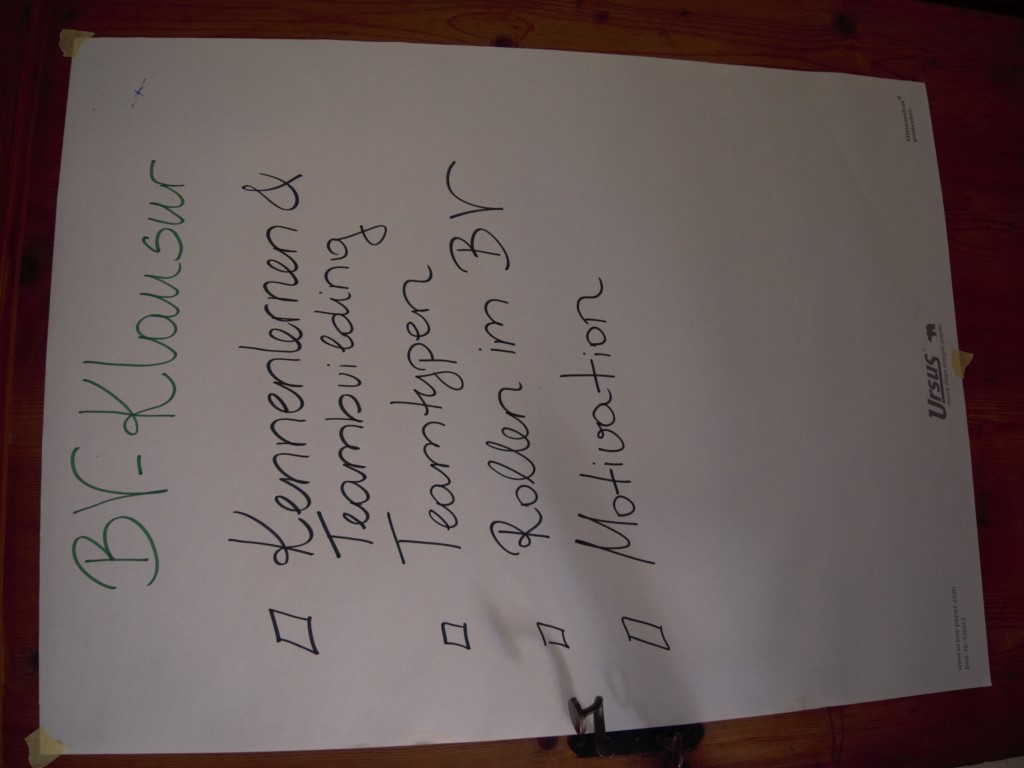 BV-Klausur
Kennenlernen &
Teambuielding
Teamtypen
Rollen im BV
Motivation
Ursus